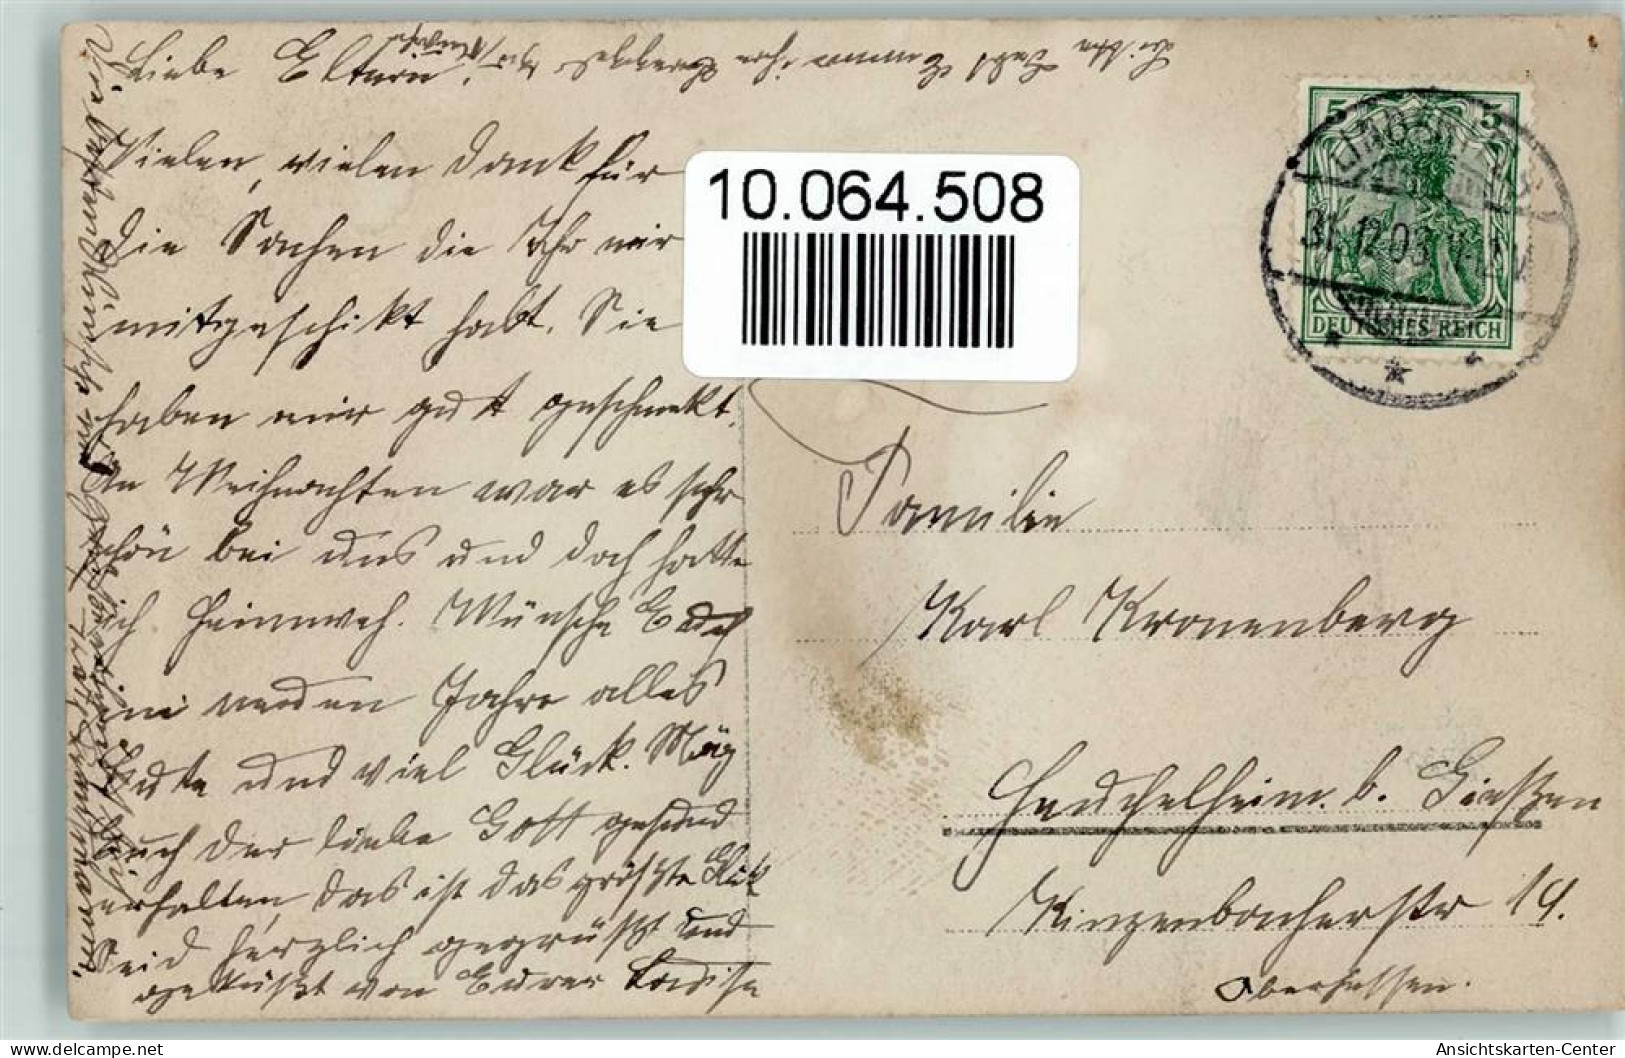 Liebe Eltern!
Vielen, vielen Dank für
die Sachen die Ihr mir
mitgeschikt habt. Sie
haben mir gut geschmekt.
An Weihnachten war es sehr
schön bei uns und doch hatte
ich Heimweh. Wünsche Euch
im neuen Jahre alles
Gute und viel Glück. Mög
Euch der liebe Gott gesund
erhalten, das ist das größte Glück
Seid herzlich gegrüßt und
geküßt von Eurer
10.064.508
5 5
31.12.03
DEUTSCHES REICH
Familie
Karl Kronenberg
Heuchelheim b. Gießen
Kinzenbacherstr 14.
Oberhessen.
Ansichtskarten-Center